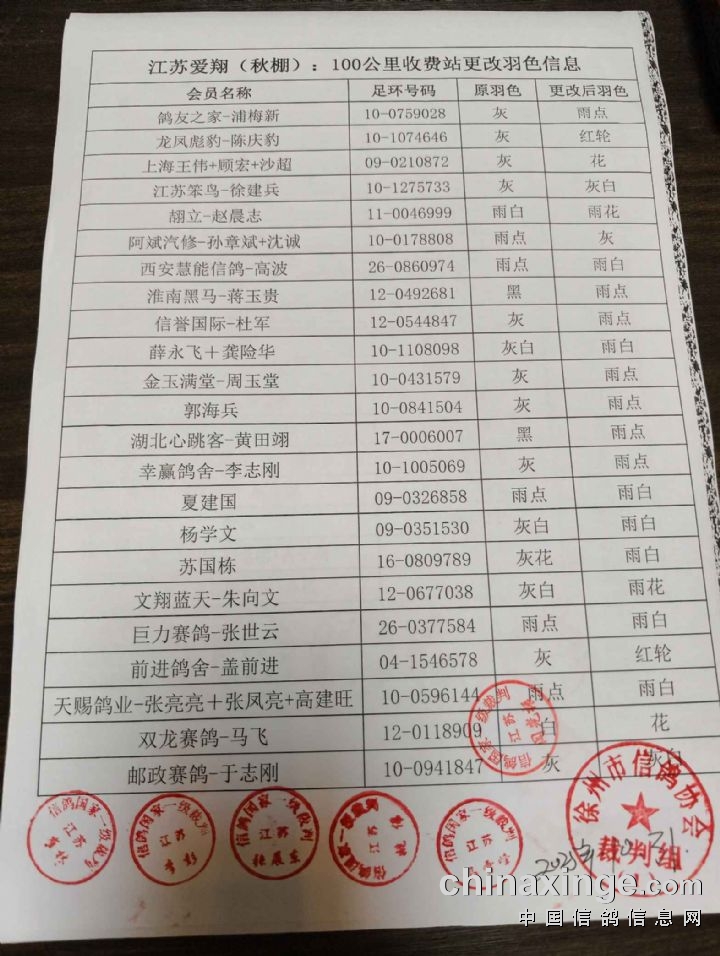 江苏爱翔（秋棚）：100公里收费站更改羽色信息
会员名称 足环号码 原羽色 更改后羽色
鸽友之家-浦梅新 10-0759028 灰 雨点
龙凤彪豹-陈庆豹 10-1074646 灰 红轮
上海王伟+顾宏+沙超 09-0210872 灰 花
江苏笨鸟-徐建兵 10-1275733 灰 灰白
翓立-赵晨志 11-0046999 雨白 雨花
阿斌汽修-孙章斌+沈诚 10-0178808 雨点 灰
西安慧能信鸽-高波 26-0860974 雨点 雨白
淮南黑马-蒋玉贵 12-0492681 黑 雨点
信誉国际-杜军 12-0544847 灰 雨点
薛永飞＋龚险华 10-1108098 灰白 雨白
金玉满堂-周玉堂 10-0431579 灰 雨点
郭海兵 10-0841504 灰 雨点
湖北心跳客-黄田翊 17-0006007 黑 雨点
幸赢鸽舍-李志刚 10-1005069 灰 雨点
夏建国 09-0326858 雨点 雨白
杨学文 09-0351530 灰白 雨白
苏国栋 16-0809789 灰花 雨白
文翔蓝天-朱向文 12-0677038 灰白 雨花
巨力赛鸽-张世云 26-0377584 雨点 雨白
前进鸽舍-盖前进 04-1546578 灰 红轮
天赐鸽业-张亮亮＋张凤亮+高建旺 10-0596144 雨点 雨白
双龙赛鸽-马飞 12-0118909 白 花
邮政赛鸽-于志刚 10-0941847 灰 灰白
信鸽国家一级裁判 江苏
信鸽国家一级裁判 江苏
信鸽国家一级裁判 江苏
信鸽国家一级裁判 江苏
信鸽国家一级裁判 江苏
徐州市信鸽协会
裁判组
chinaxinge.com
中国信鸽信息网